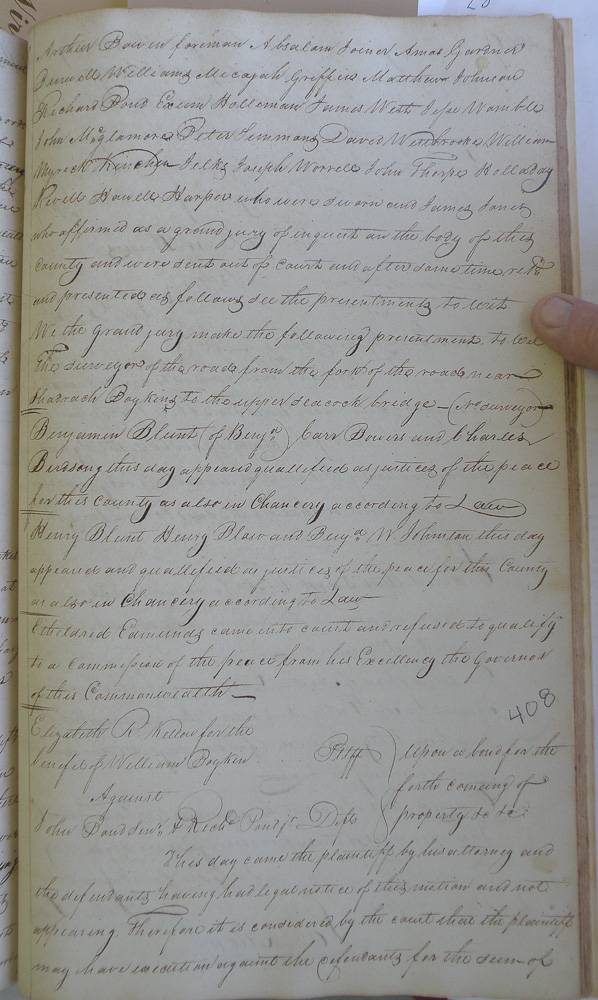 Arthur Bowen foreman Absalom Joiner Amos Gardner
Newell Williams Micajah Griffin Matthew Johnson
Richard Pond Exum Holleman James West Jesse Womble
John Maglamore Peter Simmons David Westbrooke William
Myrick Kinchen Jelks Joseph Worrell John Thorpe Holladay
Revell Howell Harper who were sworn and James Jones
who affirmed as a grand jury of inquest on the body of this
County and were sent out of court and after some time retd
and presented as follows see the presentments to wit
We the Grand jury make the following presentment to wit
The surveyor of the road from the fork of the roads near
Shadrach Boykins to the upper seacock bridge - (No surveyor
Benjamin Blunt (of Benjn) Carr Bowers and Charles
Birdsong this day appeared qualified as justices of the peace
for this County as also in Chancery according to Law
Henry Blunt Henry Blow and Benjn W Johnson this day
appeared and qualified as justices of the peace for this County
as also in Chancery according to Law
Etheldred Edmunds came into court and refused to qualify
to a Commission of the peace from his Excellency the Governor
of this Commonwealth
408
Elizabeth R Kello for the
benefit of William Boykin Pltff
Against
John Pond Senr & Richd Pond jr Defts
Upon a bond for the
forth coming of
property &c &c
This day came the plaintiff by his attorney and
the defendants having had legal notice of this motion and not
appearing Therefore it is considered by the court that the plaintiff
may have execution against the defendants for the sum of